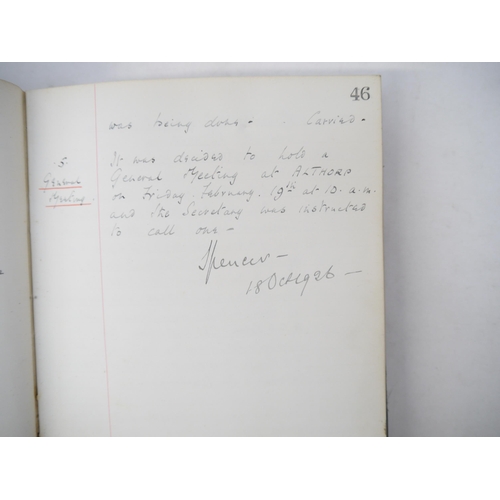 46
was being done - Carried -
5.
General
Meeting.
It was decided to hold a
General Meeting at ALTHORP
on Friday. February. 19th at 10. a.m.
and the Secretary was instructed
to call one -
Spencer -
18 Oct 1926 -